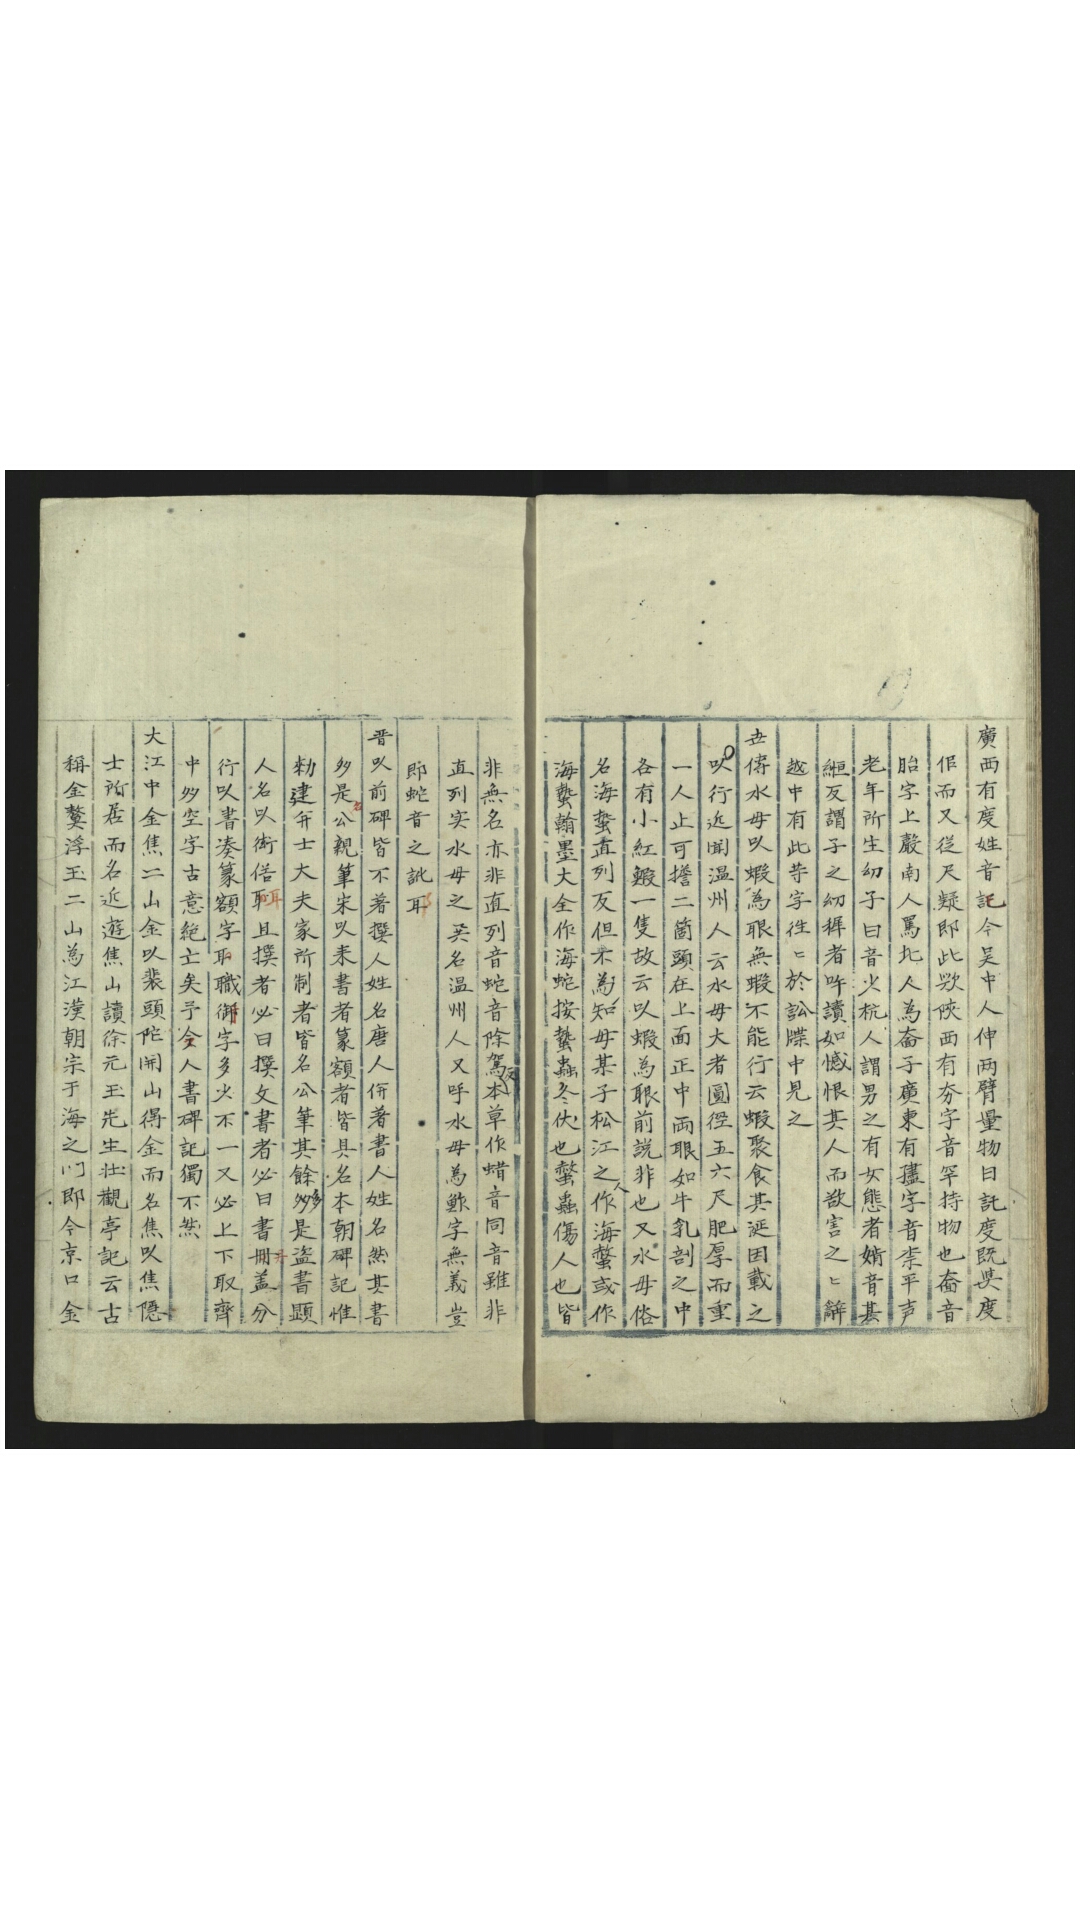 廣西有度姓音託今吴中人伸両臂量物曰託度既與度
佀而又從尺疑即此歟陜西有夯字音罕持物也奤音
胎字上嚴南人罵北人為奤子廣東有㜽字音柰平声
老年所生幼子曰音火杭人謂男之有女態者婿音甚
綑反謂子之幼稺者吽讀如憾恨其人而欲言之〻辭
越中有此等字徃〻於訟牒中見之
世傳水母以蝦為眼無蝦不能行云蝦聚食其涎因載之
以行近聞温州人云水母大者圓徑五六尺肥厚而重
一人止可擔二箇頭在上面正中両眼如牛乳剖之中
各有小紅蝦一隻故云以蝦為眼前説非也又水母俗
名海蜇直列反但不為知母某子松江之人作海蟄或作
海蟄翰墨大全作海蛇按蟄蟲冬伏也蟄虫傷人也皆
非無名亦非直列音蛇音除駕反本草作蜡音同音雖非
直列实水母之英名温州人又呼水母為鲊字無義豈
即蛇音之訛耳
晋以前碑皆不著撰人姓名唐人併著書人姓名然其書
多是公親筆宋以来書者篆額者皆具名本朝碑記惟
勑建并士大夫家所制者皆名公筆其餘多是盗書顕
人名以衒俗耳且撰者必曰撰文書者必曰書冊盖分
行以書凑篆額字取職御字多少不一又必上下取齊
中多空字古意絶亡矣予令人書碑記獨不然
大江中金焦二山金以裴頭陀開山得金而名焦以焦隠
士所居而名近遊焦山讀徐元玉先生壮觀亭記云古
稱金鰲浮玉二山為江漢朝宗于海之门即今京口金